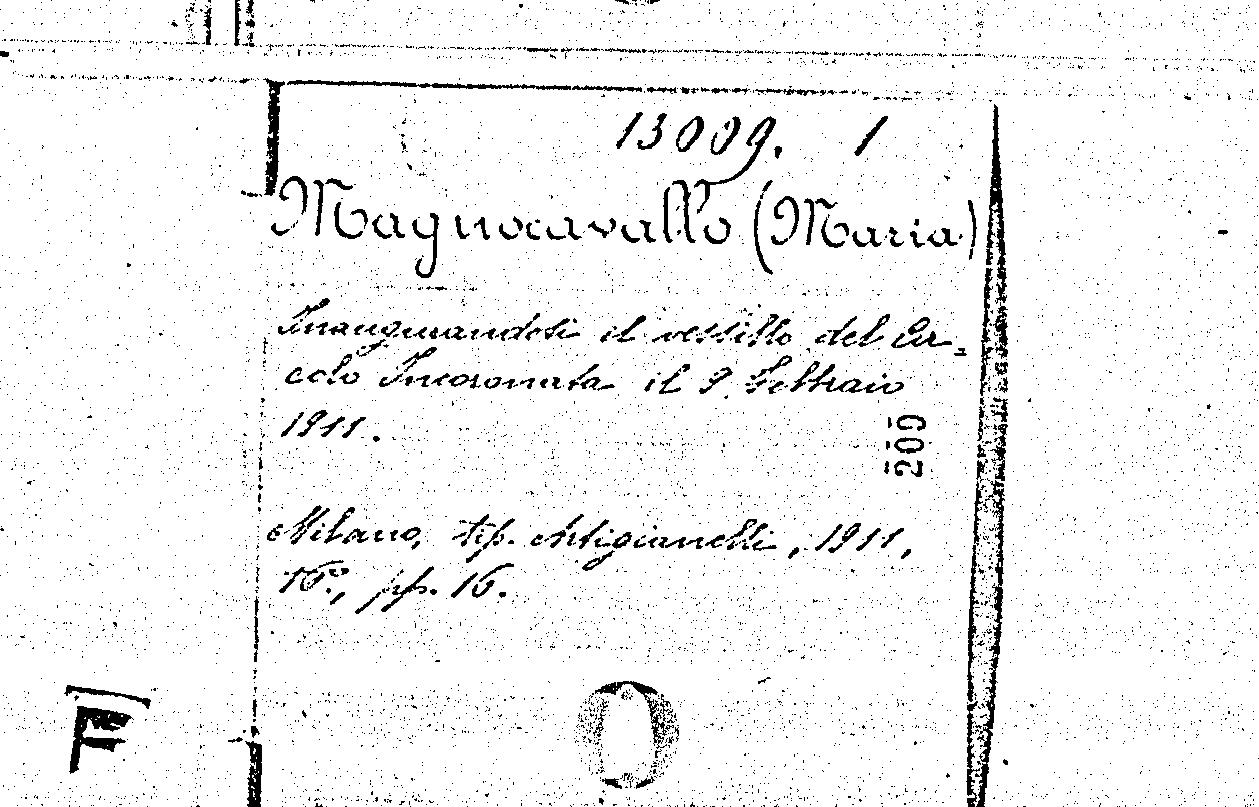 13009. 1
Magnocavallo (Maria)
Inaugurandosi il vessillo del Cir=
colo Incoronata il 9 Febbraio
1911.
209
Milano, tip. Artigianelli, 1911,
16°, pp. 16.
F